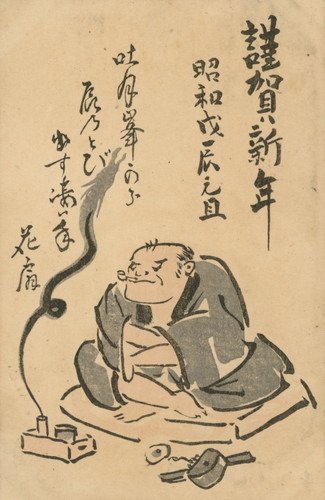 謹賀新年
昭和戊辰元旦
吐月峯から
辰乃とび
出す
花扇